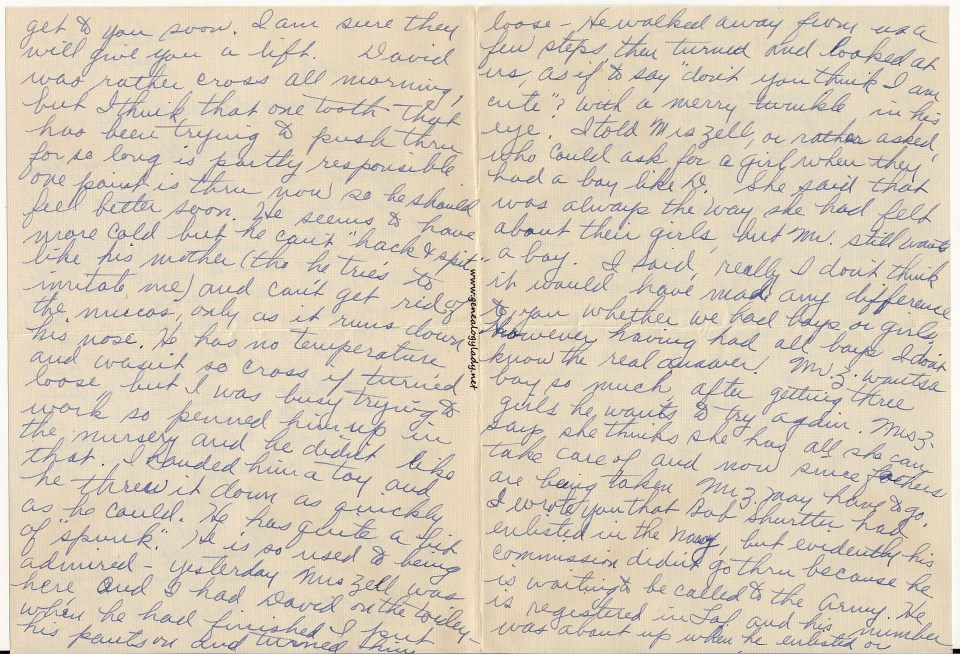 get to you soon. I am sure they
will give you a lift. David
was rather cross all morning,
but I think that one tooth that
has been trying to push thru
for so long is partly responsible
one point is thru now so he should
feel better soon. He seems to have
more cold but he can't "hack & spit"
like his mother (tho he tries to
imitate me) and can't get rid of
the mucas, only as it runs down
his nose. He has no temperature
and wasn't so cross if turned
loose but I was busy trying to
work so penned him up in
the nursery and he didn't like
that. I handed him a toy and
he threw it down as quickly
as he could. He has quite a bit
of "spunk". He is so used to being
admired - yesterday Mrs Zell was
here and I had David on the toidey
when he had finished I put
his pants on and turned him
loose - He walked away from us a
few steps then turned and looked at
us, as if to say "don't you think I am
cute"? with a merry twinkle in his
eye. I told Mrs Zell, or rather asked,
who could ask for a girl when they
had a boy like D. She said that
was always the way she had felt
about their girls, but Mr. still wants
a boy. I said, really I don't think
it would have made any difference
to you whether we had boys or girls,
however having had all boys I don't
know the real answer! Mr Z. wants a
boy so much after getting three
girls he wants to try again. Mrs Z.
says she thinks she has all she can
take care of and now since fathers
are being taken Mr Z. may have to go.
I wrote you that Bob Shurtter had
enlisted in the Navy, but evidently his
commission didn't go thru because he
is waiting to be called to the Army. He
is registered in Laf and his number
was about up when he enlisted or
www.genealogylady.net